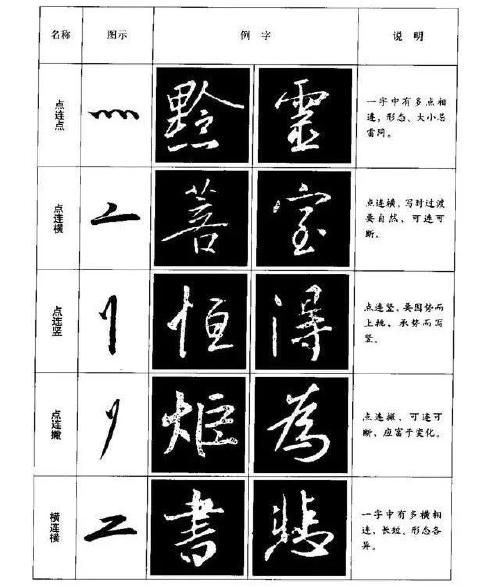 名称 图示 例字 说明
点连点
黔 靈
一字中有多点相
连,形态、大小忌
雷同。
点连横
菩
点连横,写时过渡
要自然、可连可
断。
点连竖
恒 得
点连竖、要因势而
上挑、承势而写
竖。
点连撇
炬 為
点连撇、可连可
断、应富于变化。
横连横
書 悲
一字中有多横相
连,长短、形态各
异。